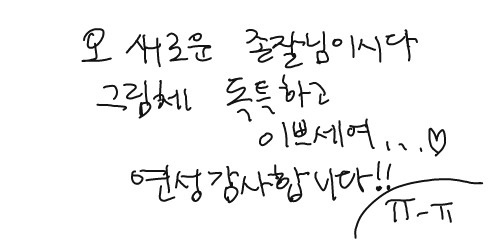 오 새로운 존잘님이시다
그림체 독특하고
이쁘세여...♡
연성감사합니다!!
ㅠ-ㅠ